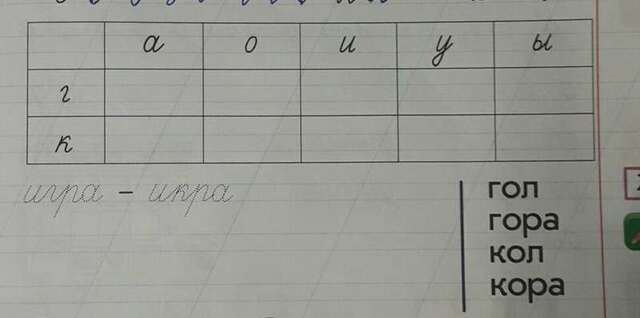 а о и у ы
г
к
игра – икра
гол
гора
кол
кора